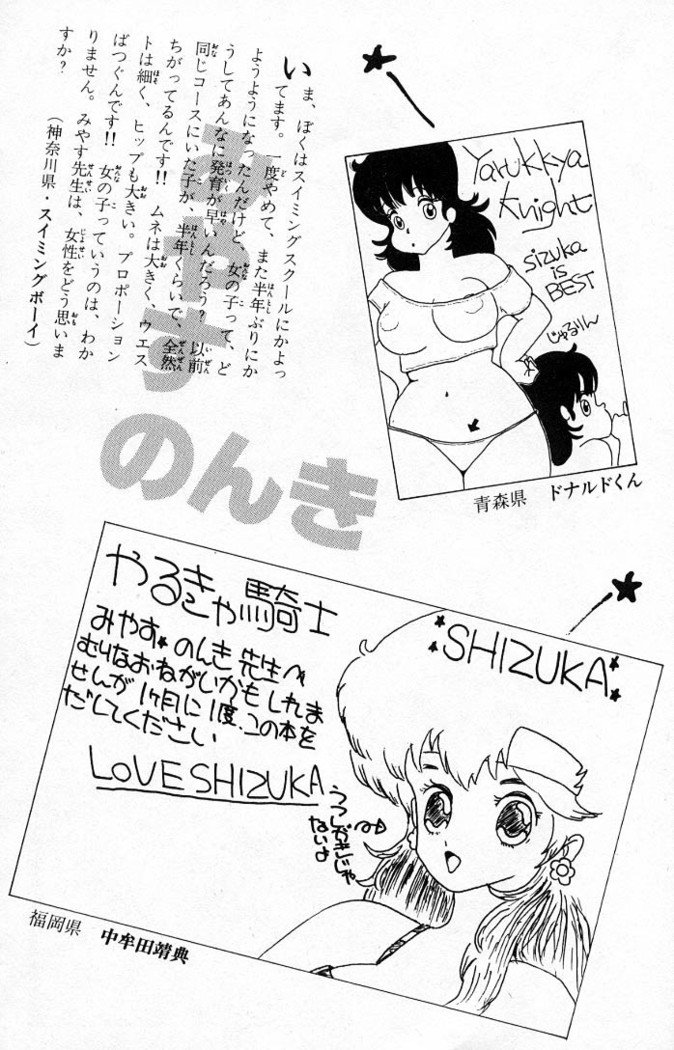 いま、ぼくはスイミングスクールにかよっ
てます。一度やめて、また半年ぶりにか
ようようになったんだけど、女の子って、ど
うしてあんなに発育が早いんだろう? 以前
同じコースにいた子が、半年くらいで、全然
ちがってるんです!! ムネは大きく、ウエス
トは細く、ヒップも大きい。プロポーション
ばつぐんです!! 女の子っていうのは、わか
りません。みやす先生は、女性をどう思いま
すか?
(神奈川県・スイミングボーイ)
みやす
のんき
Yarukkya
Knight
sizuka
is
BEST
じゅるりん
青森県 ドナルドくん
やるきゃ騎士
みやすのんき先生へ
むりなおねがいかもしれま
せんが1ヶ月に1度、この本を
だしてください
LOVE SHIZUKA
SHIZUKA
うつしがきじゃ
ないよ
福岡県 中牟田靖典